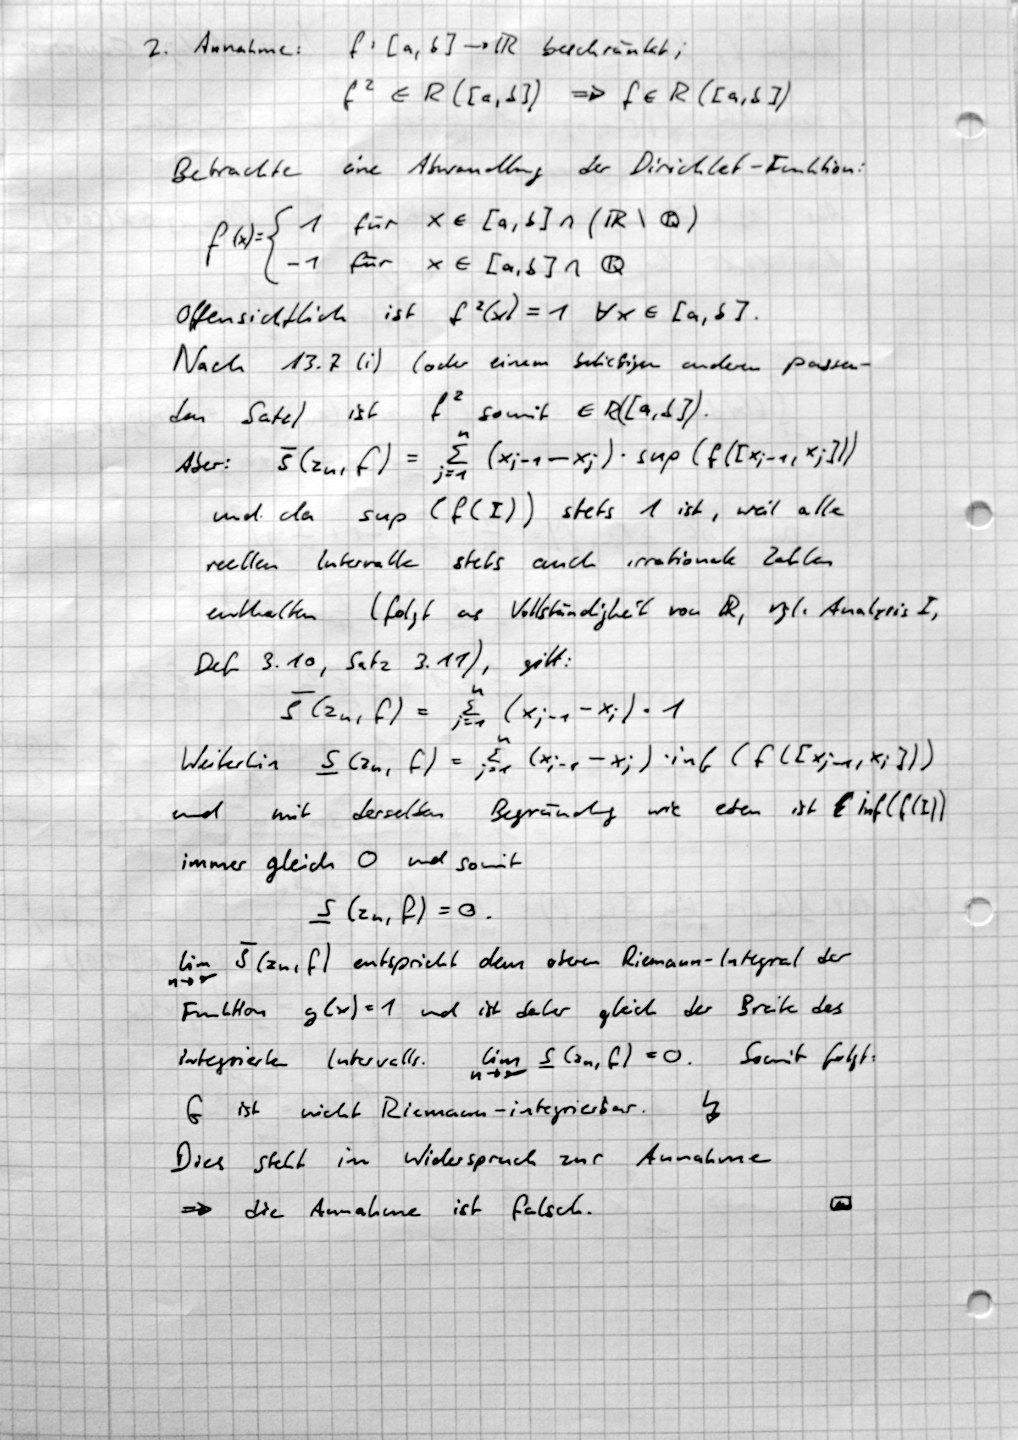 2. Annahme: f: [a, b] → ℝ beschränkt;
f² ∈ R([a,b]) ⇒ f ∈ R([a,b])
Betrachte eine Abwandlung der Dirichlet-Funktion:
f(x) = { 1 für x ∈ [a,b] ∩ (ℝ \ ℚ)
-1 für x ∈ [a,b] ∩ ℚ
Offensichtlich ist f²(x) = 1 ∀x ∈ [a,b].
Nach 13.7 (i) (oder einem beliebigen anderen passen-
den Satz) ist f² somit ∈ R([a,b]).
Aber: S̅(zₙ, f) = ∑ⁿⱼ₌₁ (xⱼ₋₁ - xⱼ) · sup (f([xⱼ₋₁, xⱼ]))
und da sup (f(I)) stets 1 ist, weil alle
reellen Intervalle stets auch irrationale Zahlen
enthalten (folgt aus Vollständigkeit von ℝ, vgl. Analysis I,
Def 3.10, Satz 3.11), gilt:
S̅(zₙ, f) = ∑ⁿⱼ₌₁ (xⱼ₋₁ - xⱼ) · 1
Weiterhin S̲(zₙ, f) = ∑ⁿⱼ₌₁ (xⱼ₋₁ - xⱼ) · inf (f([xⱼ₋₁, xⱼ]))
und mit derselben Begründung wie eben ist inf(f(I))
immer gleich 0 und somit
S̲(zₙ, f) = 0.
lim n→∞ S̅(zₙ, f) entspricht dem oberen Riemann-Integral der
Funktion g(x) = 1 und ist daher gleich der Breite des
integrierten Intervalls. lim n→∞ S̲(zₙ, f) = 0. Somit folgt:
f ist nicht Riemann-integrierbar. ↯
Dies steht im Widerspruch zur Annahme
⇒ die Annahme ist falsch.